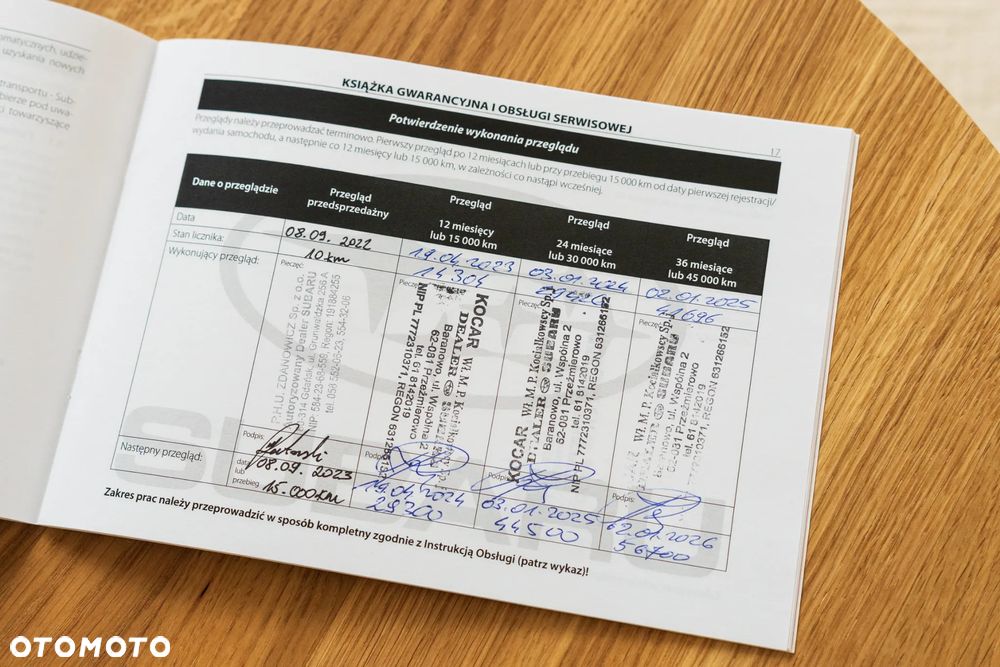 omatycznych, udzie-
uzyskania nowych
transportu - Sub-
bierze pod uwa-
ci towarzyszące
KSIĄŻKA GWARANCYJNA I OBSŁUGI SERWISOWEJ
17
Potwierdzenie wykonania przeglądu
Przeglądy należy przeprowadzać terminowo. Pierwszy przegląd po 12 miesiącach lub przy przebiegu 15 000 km od daty pierwszej rejestracji/
wydania samochodu, a następnie co 12 miesięcy lub 15 000 km, w zależności co nastąpi wcześniej.
Dane o przeglądzie
Przegląd
przedsprzedażny
Przegląd
12 miesięcy
lub 15 000 km
Przegląd
24 miesiące
lub 30 000 km
Przegląd
36 miesiące
lub 45 000 km
Data
08.09. 2022
19.04.2023
03.01.2024
02.01.2025
Stan licznika:
10 km
14 304
41696
Wykonujący przegląd:
Pieczęć:
P.H.U. ZDANOWICZ Sp. z o.o.
Autoryzowany Dealer SUBARU
Gdańsk, ul. Grunwaldzka 256 A
Pieczęć:
KOCAR Wł. M.P. Kociałkowscy Sp.
DEALER SUBARU
Baranowo, ul. Wspólna 2
62-081 Przeźmierowo
tel. 61 8142019
NIP PL 7772310371, REGON 631266152
Pieczęć:
KOCAR Wł. M.P. Kociałkowscy Sp.
DEALER SUBARU
Baranowo, ul. Wspólna 2
62-081 Przeźmierowo
tel. 61 8142019
NIP PL 7772310371, REGON 631266152
Pieczęć:
Wł. M.P. Kociałkowscy Sp.
Baranowo, ul. Wspólna 2
62-081 Przeźmierowo
tel. 61 8142019
7772310371, REGON 631266152
Podpis:
Podpis:
Podpis:
Podpis:
Następny przegląd:
data
lub
przebieg
08.09. 2023
15.000km
19.04.2024
29300
03.01.2025
44500
02.01.2026
56700
Zakres prac należy przeprowadzić w sposób kompletny zgodnie z Instrukcją Obsługi (patrz wykaz)!
SUBARU
OTOMOTO